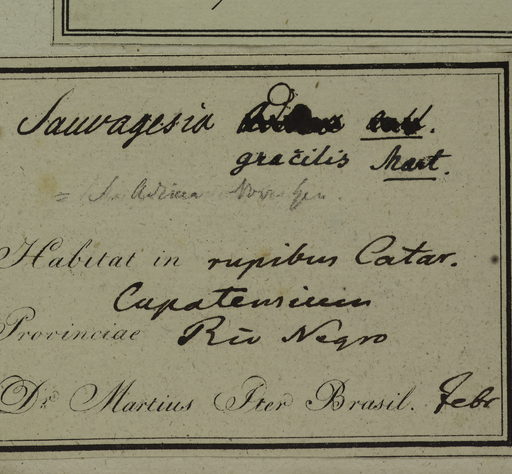 Sauvagesia
gracilis Mart.
= Adima Nov. Gen
Habitat in rupibus Catar.
Cupatensium
Provinciae Rio Negro
Dr. Martius Iter Brasil. Febr